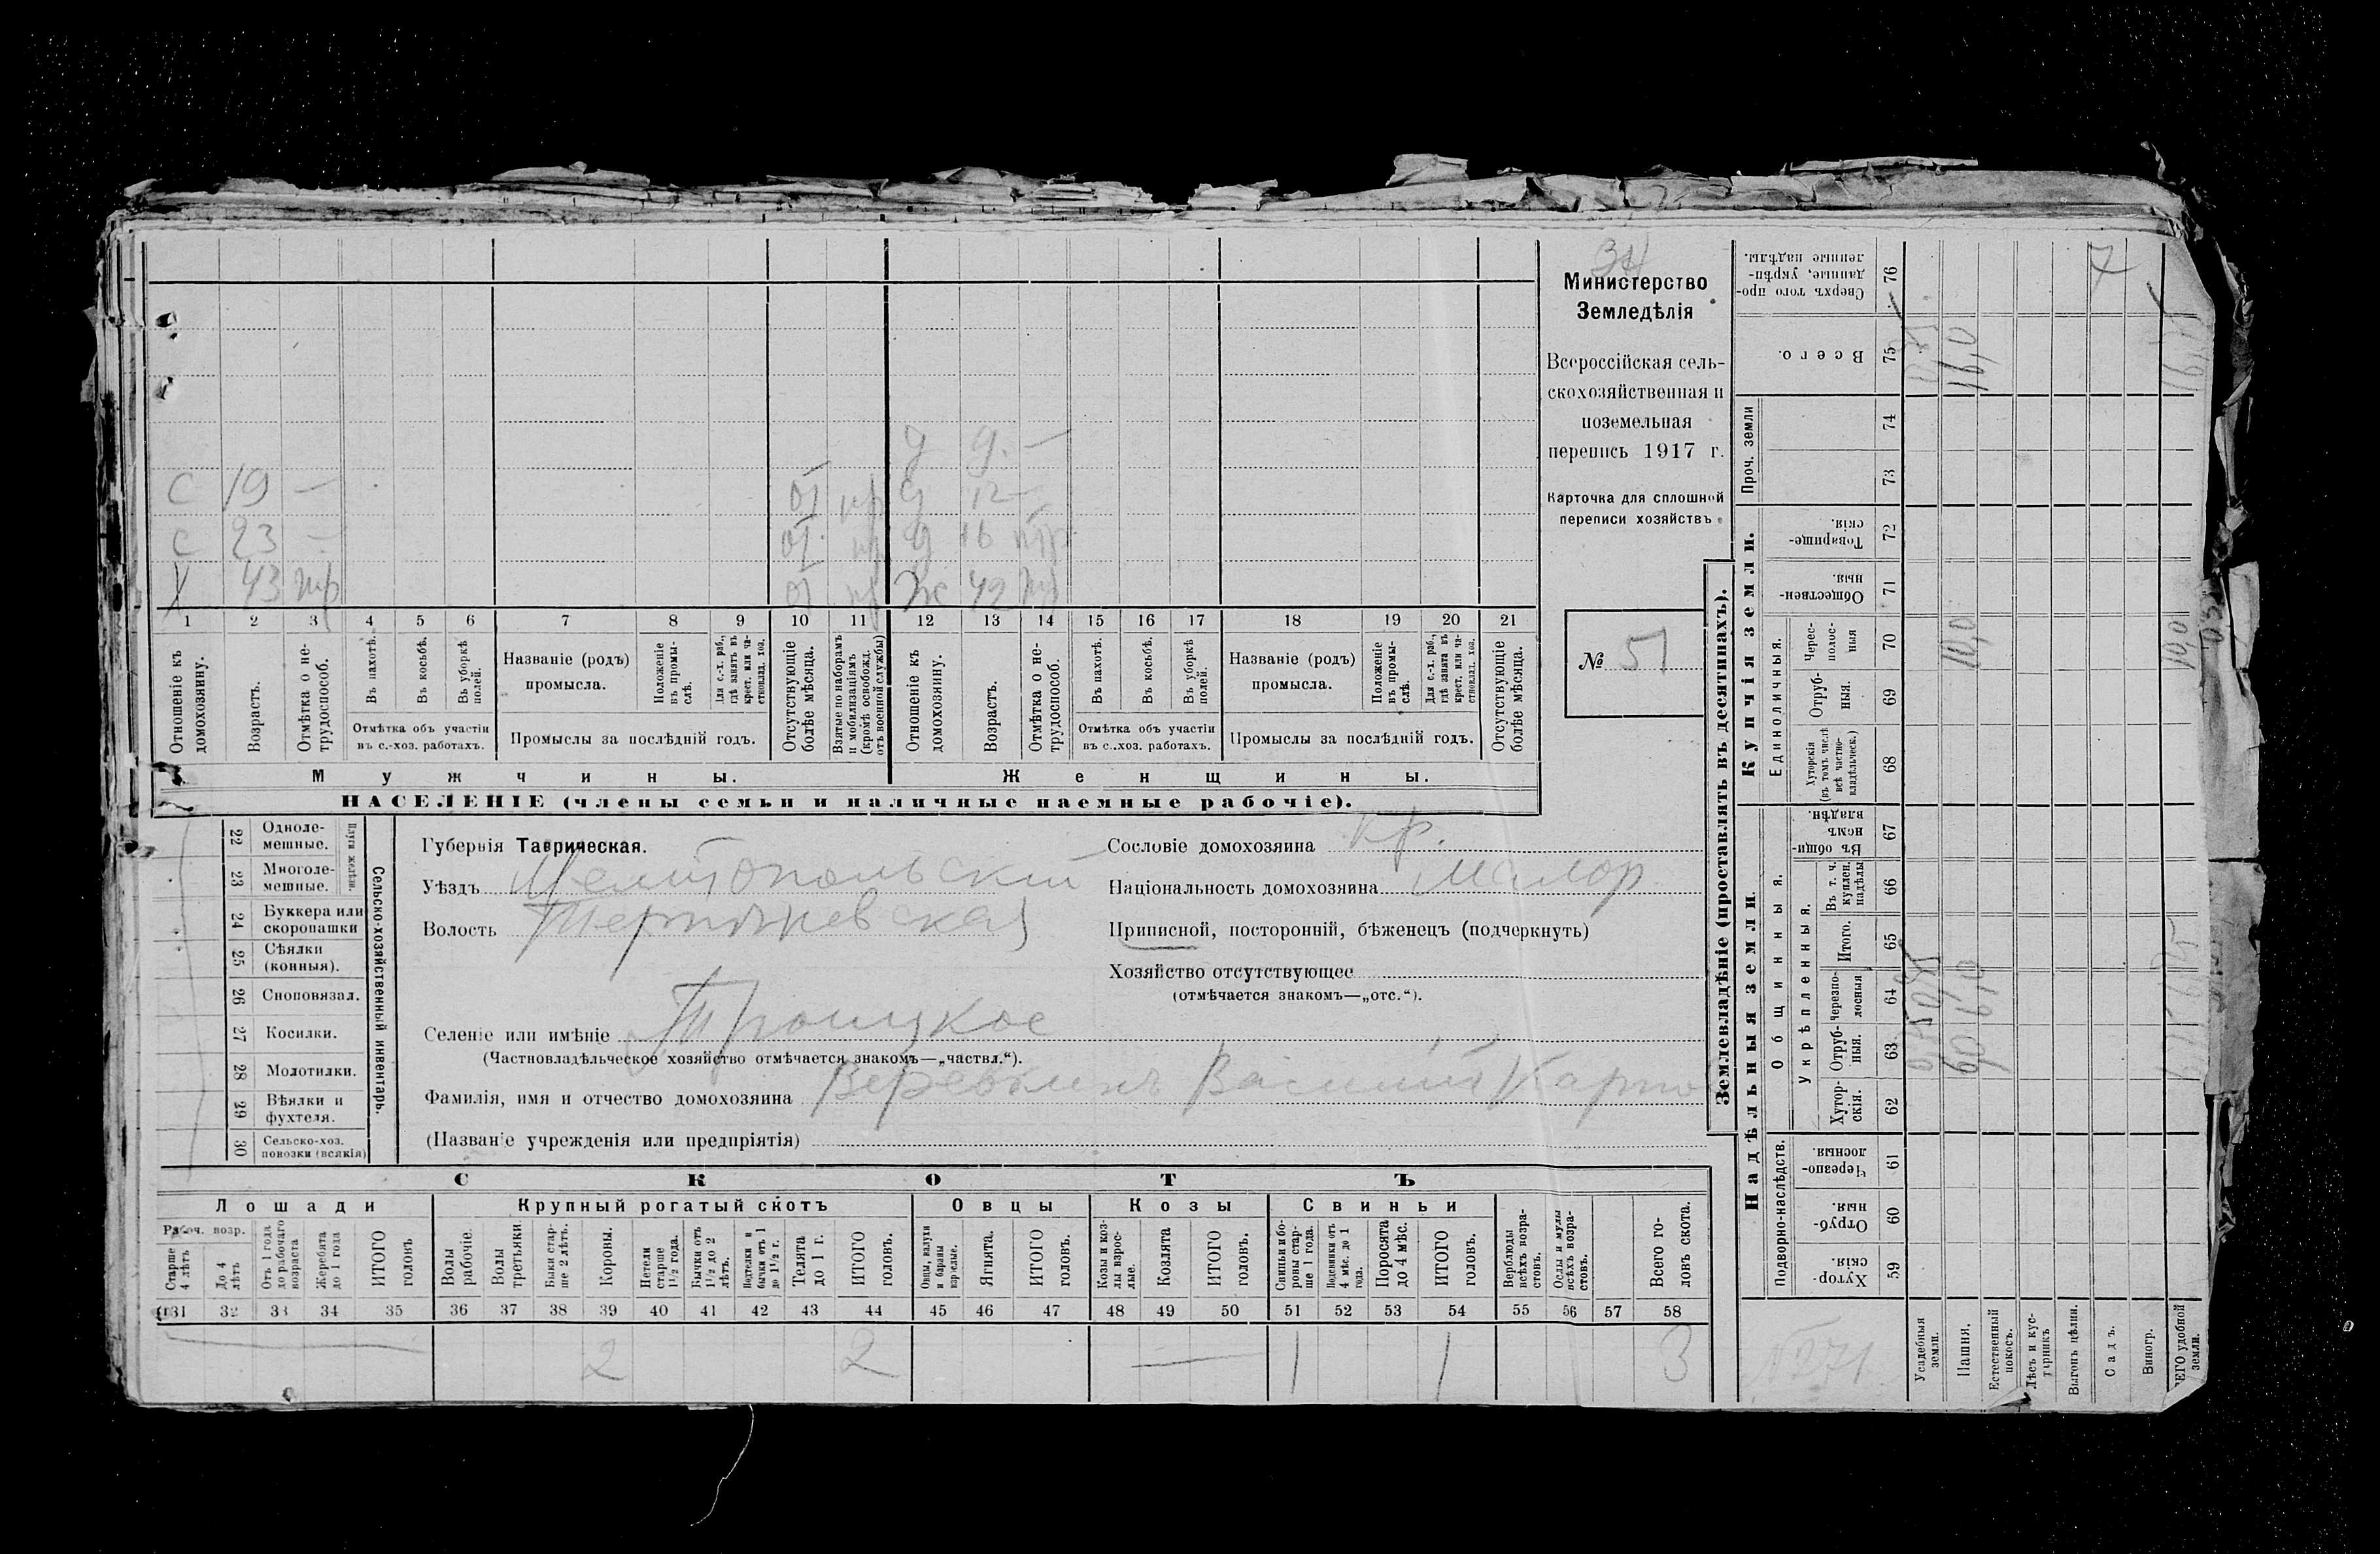 34
Министерство
Земледѣлія
Всероссійская сель-
скохозяйственная и
поземельная
перепись 1917 г.
Карточка для сплошной
переписи хозяйствъ.
№ 51
д 9. —
С 19 — от пр д 12 —
С 23 — от. пр д 16
43 от пр Ж 42
1 2 3 4 5 6 7 8 9 10 11 12 13 14 15 16 17 18 19 20 21
Отношеніе къ домохозяину.
Возрастъ.
Отмѣтка о не-трудоспособ.
Въ пахотѣ.
Въ косьбѣ.
Въ уборкѣ полей.
Отмѣтка объ участіи
въ с.-хоз. работахъ.
Названіе (родъ)
промысла.
Положеніе въ промы-слѣ.
Для с.-х. раб., гдѣ занятъ въ крест. или ча-стновлад. хоз.
Промыслы за послѣдній годъ.
Отсутствующіе болѣе мѣсяца.
Взятые по наборамъ и мобилизаціямъ (кромѣ освобожд. отъ военной службы)
Отношеніе къ домохозяину.
Возрастъ.
Отмѣтка о не-трудоспособ.
Въ пахотѣ.
Въ косьбѣ.
Въ уборкѣ полей.
Отмѣтка объ участіи
въ с.-хоз. работахъ.
Названіе (родъ)
промысла.
Положеніе въ промы-слѣ.
Для с.-х. раб., гдѣ занята въ крест. или ча-стновлад. хоз.
Промыслы за послѣдній годъ.
Отсутствующіе болѣе мѣсяца.
Мужчины. Женщины.
НАСЕЛЕНІЕ (члены семьи и наличные наемные рабочіе).
22 Одноле-мешные.
23 Многоле-мешные.
Плуги желѣзн.
24 Буккера или скоропашки
25 Сѣялки (конныя).
26 Сноповязал.
27 Косилки.
28 Молотилки.
29 Вѣялки и фухтеля.
30 Сельско-хоз. повозки (всякія)
Сельско-хозяйственный инвентарь.
Губернія Таврическая.
Уѣздъ Мелитопольскій
Волость
Селеніе или имѣніе Троицкое
(Частновладѣльческое хозяйство отмѣчается знакомъ—„частвл.“).
Фамилія, имя и отчество домохозяина Василій Карпо
(Названіе учрежденія или предпріятія)
Сословіе домохозяина кр.
Національность домохозяина малор
Приписной, посторонній, бѣженецъ (подчеркнуть)
Хозяйство отсутствующее
(отмѣчается знакомъ—„отс.“).
СКОТЪ
Лошади Крупный рогатый скотъ Овцы Козы Свиньи
Рабоч. возр.
Старше 4 лѣтъ
До 4 лѣтъ
Отъ 1 года до рабочаго возраста
Жеребята до 1 года
ИТОГО головъ
Волы рабочіе.
Волы третьяки
Быки стар-ше 2 лѣтъ.
Коровы.
Нетели старше 1½ года.
Бычки отъ 1½ до 2 лѣтъ.
Подтелки и бычки отъ 1 до 1½ г.
Телята до 1 г.
ИТОГО головъ.
Овцы, валухи и бараны взрослые.
Ягнята.
ИТОГО головъ.
Козы и коз-лы взрос-лые.
Козлята
ИТОГО головъ.
Свиньи и бо-ровы стар-ше 1 года.
Подсвинки отъ 4 мѣс. до 1 года.
Поросята до 4 мѣс.
ИТОГО головъ.
Верблюды всѣхъ возра-стовъ.
Ослы и мулы всѣхъ возра-стовъ.
Всего го-ловъ скота.
31 32 33 34 35 36 37 38 39 40 41 42 43 44 45 46 47 48 49 50 51 52 53 54 55 56 57 58
2 2 — 1 1 3
Землевладѣніе (проставлять въ десятинахъ).
Надѣльныя земли.
Купчія земли.
Подворно-наслѣдств.
Общинныя.
Укрѣпленныя.
Единоличныя.
Проч. земли
Сверхъ того про-данные, укрѣп-ленные надѣлы. 76
Всего. 75
74
73
Товарище-скія. 72
Обществен-ныя. 71
Черес-полос-ныя 70
Отруб-ныя. 69
Хуторскія (въ томъ числѣ всѣ частно-владѣльческ.) 68
Въ общи-номъ владѣн. 67
Въ т. ч. куплен. надѣлы 66
Итого. 65
Черезпо-лосныя 64
Отруб-ныя. 63
Хутор-скія. 62
Черезпо-лосныя 61
Отруб-ныя. 60
Хутор-скія. 59
Усадебныя земли.
Пашня.
Естественный покосъ.
Лѣсъ и кус-тарникъ
Выгонъ цѣлин.
Садъ.
Виногр.
ВСЕГО удобной земли.
16,0
10,0
6,0
10,0
7